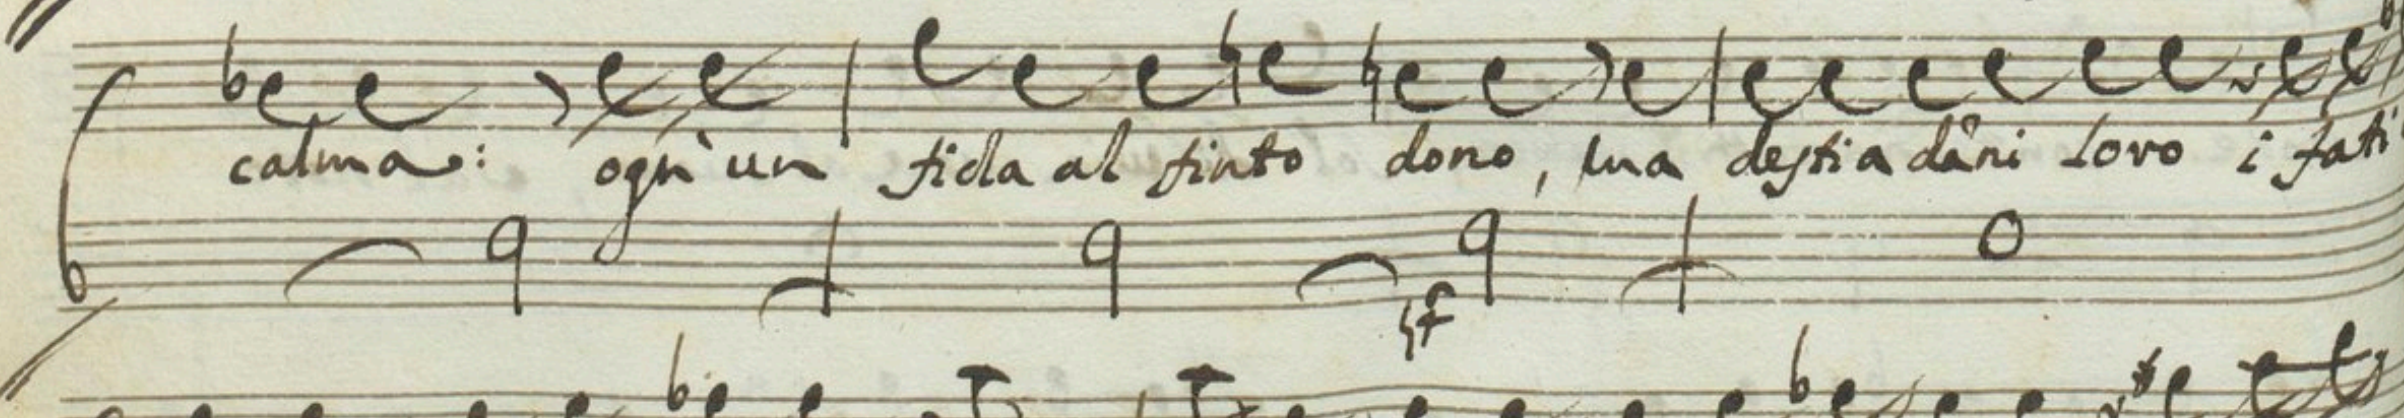 calma: ogn'un fida al finto dono, ma destia dãni loro i fati
sf